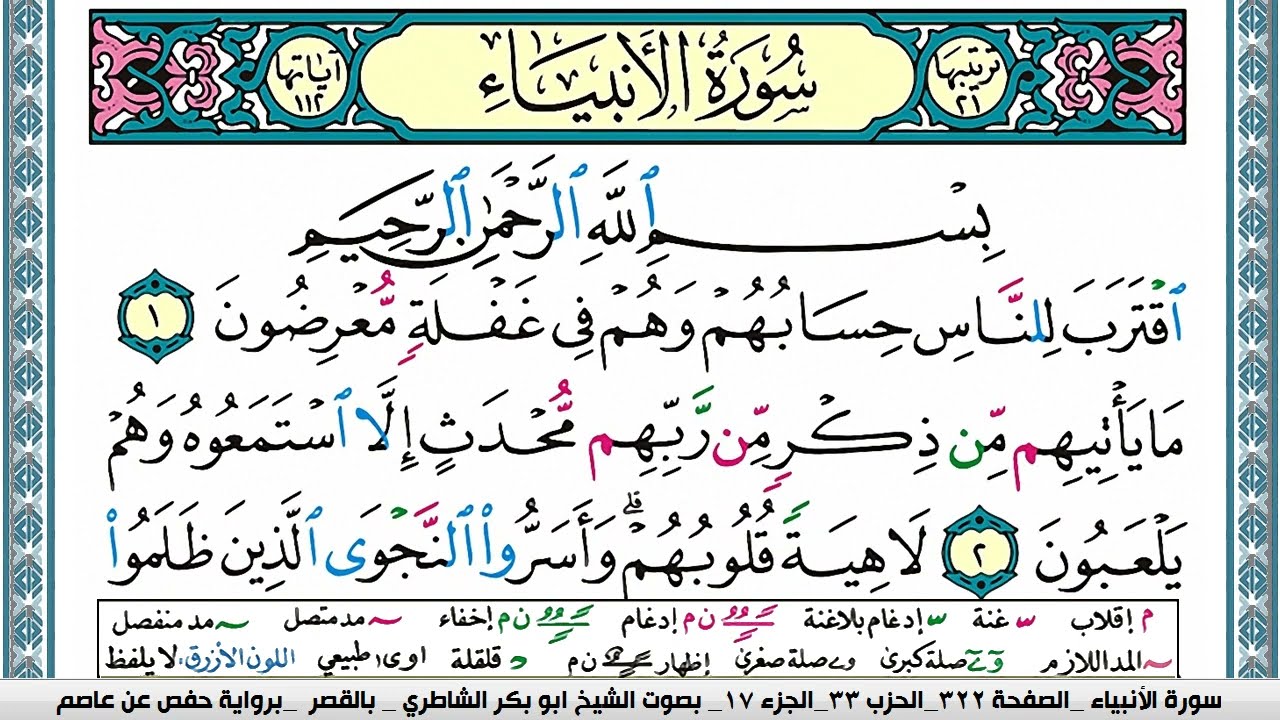 ترتيبها ٢١ سُورَةُ الأَنبِيَاءِ آياتها ١١٢
بِسْمِ ٱللَّهِ ٱلرَّحْمَٰنِ ٱلرَّحِيمِ
ٱقْتَرَبَ لِلنَّاسِ حِسَابُهُمْ وَهُمْ فِي غَفْلَةٍ مُّعْرِضُونَ ١
مَا يَأْتِيهِم مِّن ذِكْرٍ مِّن رَّبِّهِم مُّحْدَثٍ إِلَّا ٱسْتَمَعُوهُ وَهُمْ
يَلْعَبُونَ ٢ لَاهِيَةً قُلُوبُهُمْ ۗ وَأَسَرُّوا۟ ٱلنَّجْوَى ٱلَّذِينَ ظَلَمُوا۟
م إقلاب غنة إدغام بلاغنة ن م إدغام ن م إخفاء مد متصل مد منفصل
المد اللازم صلة كبرى صلة صغرى إظهار ن م قلقلة اوى طبيعي اللون الأزرق: لا يلفظ
سورة الأنبياء _الصفحة ٣٢٢_الحزب ٣٣_الجزء ١٧_ بصوت الشيخ ابو بكر الشاطري _ بالقصر _برواية حفص عن عاصم